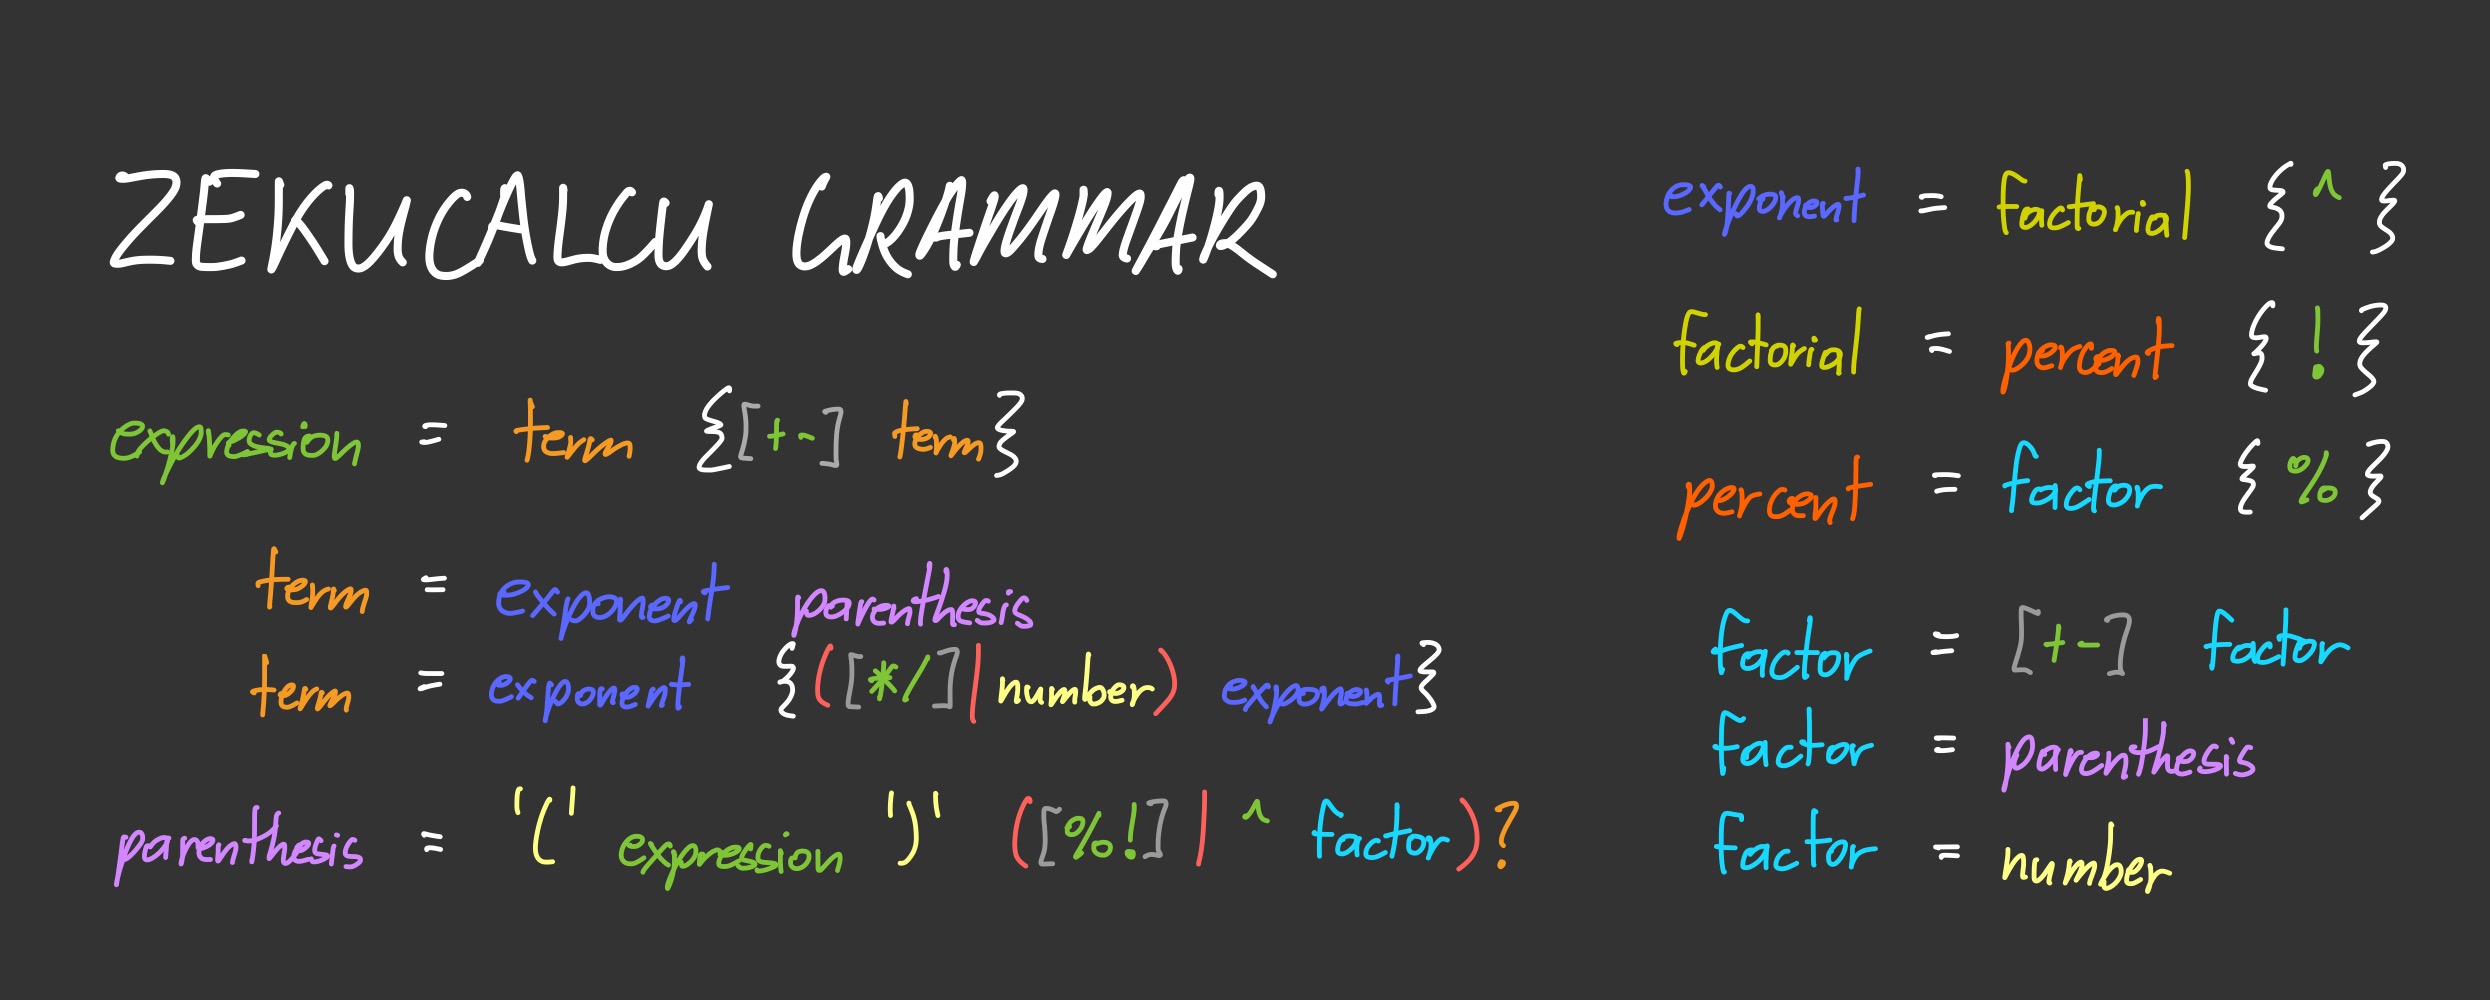 ZEKUCALCU GRAMMAR
expression = term {[+-] term}
term = exponent parenthesis
term = exponent {([*/]|number) exponent}
parenthesis = '(' expression ')' ([%!]| ^ factor)?
exponent = factorial { ^ }
factorial = percent { ! }
percent = factor { % }
factor = [+-] factor
factor = parenthesis
factor = number